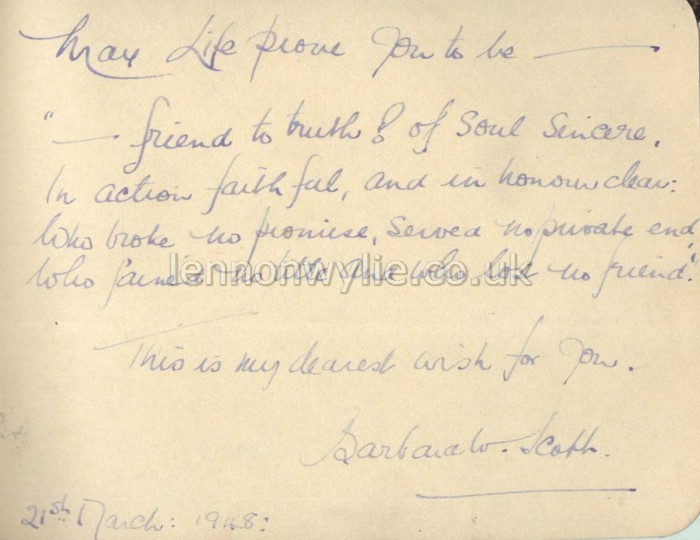 May Life prove you to be ———
"— friend to truth & of Soul Sincere,
In action faithful, and in honour clear:
Who broke no promise, Served no private end,
Who gained no title and who lost no friend".
lennonwylie.co.uk
This is my dearest wish for you.
Barbara W. Scott.
21st March: 1948: